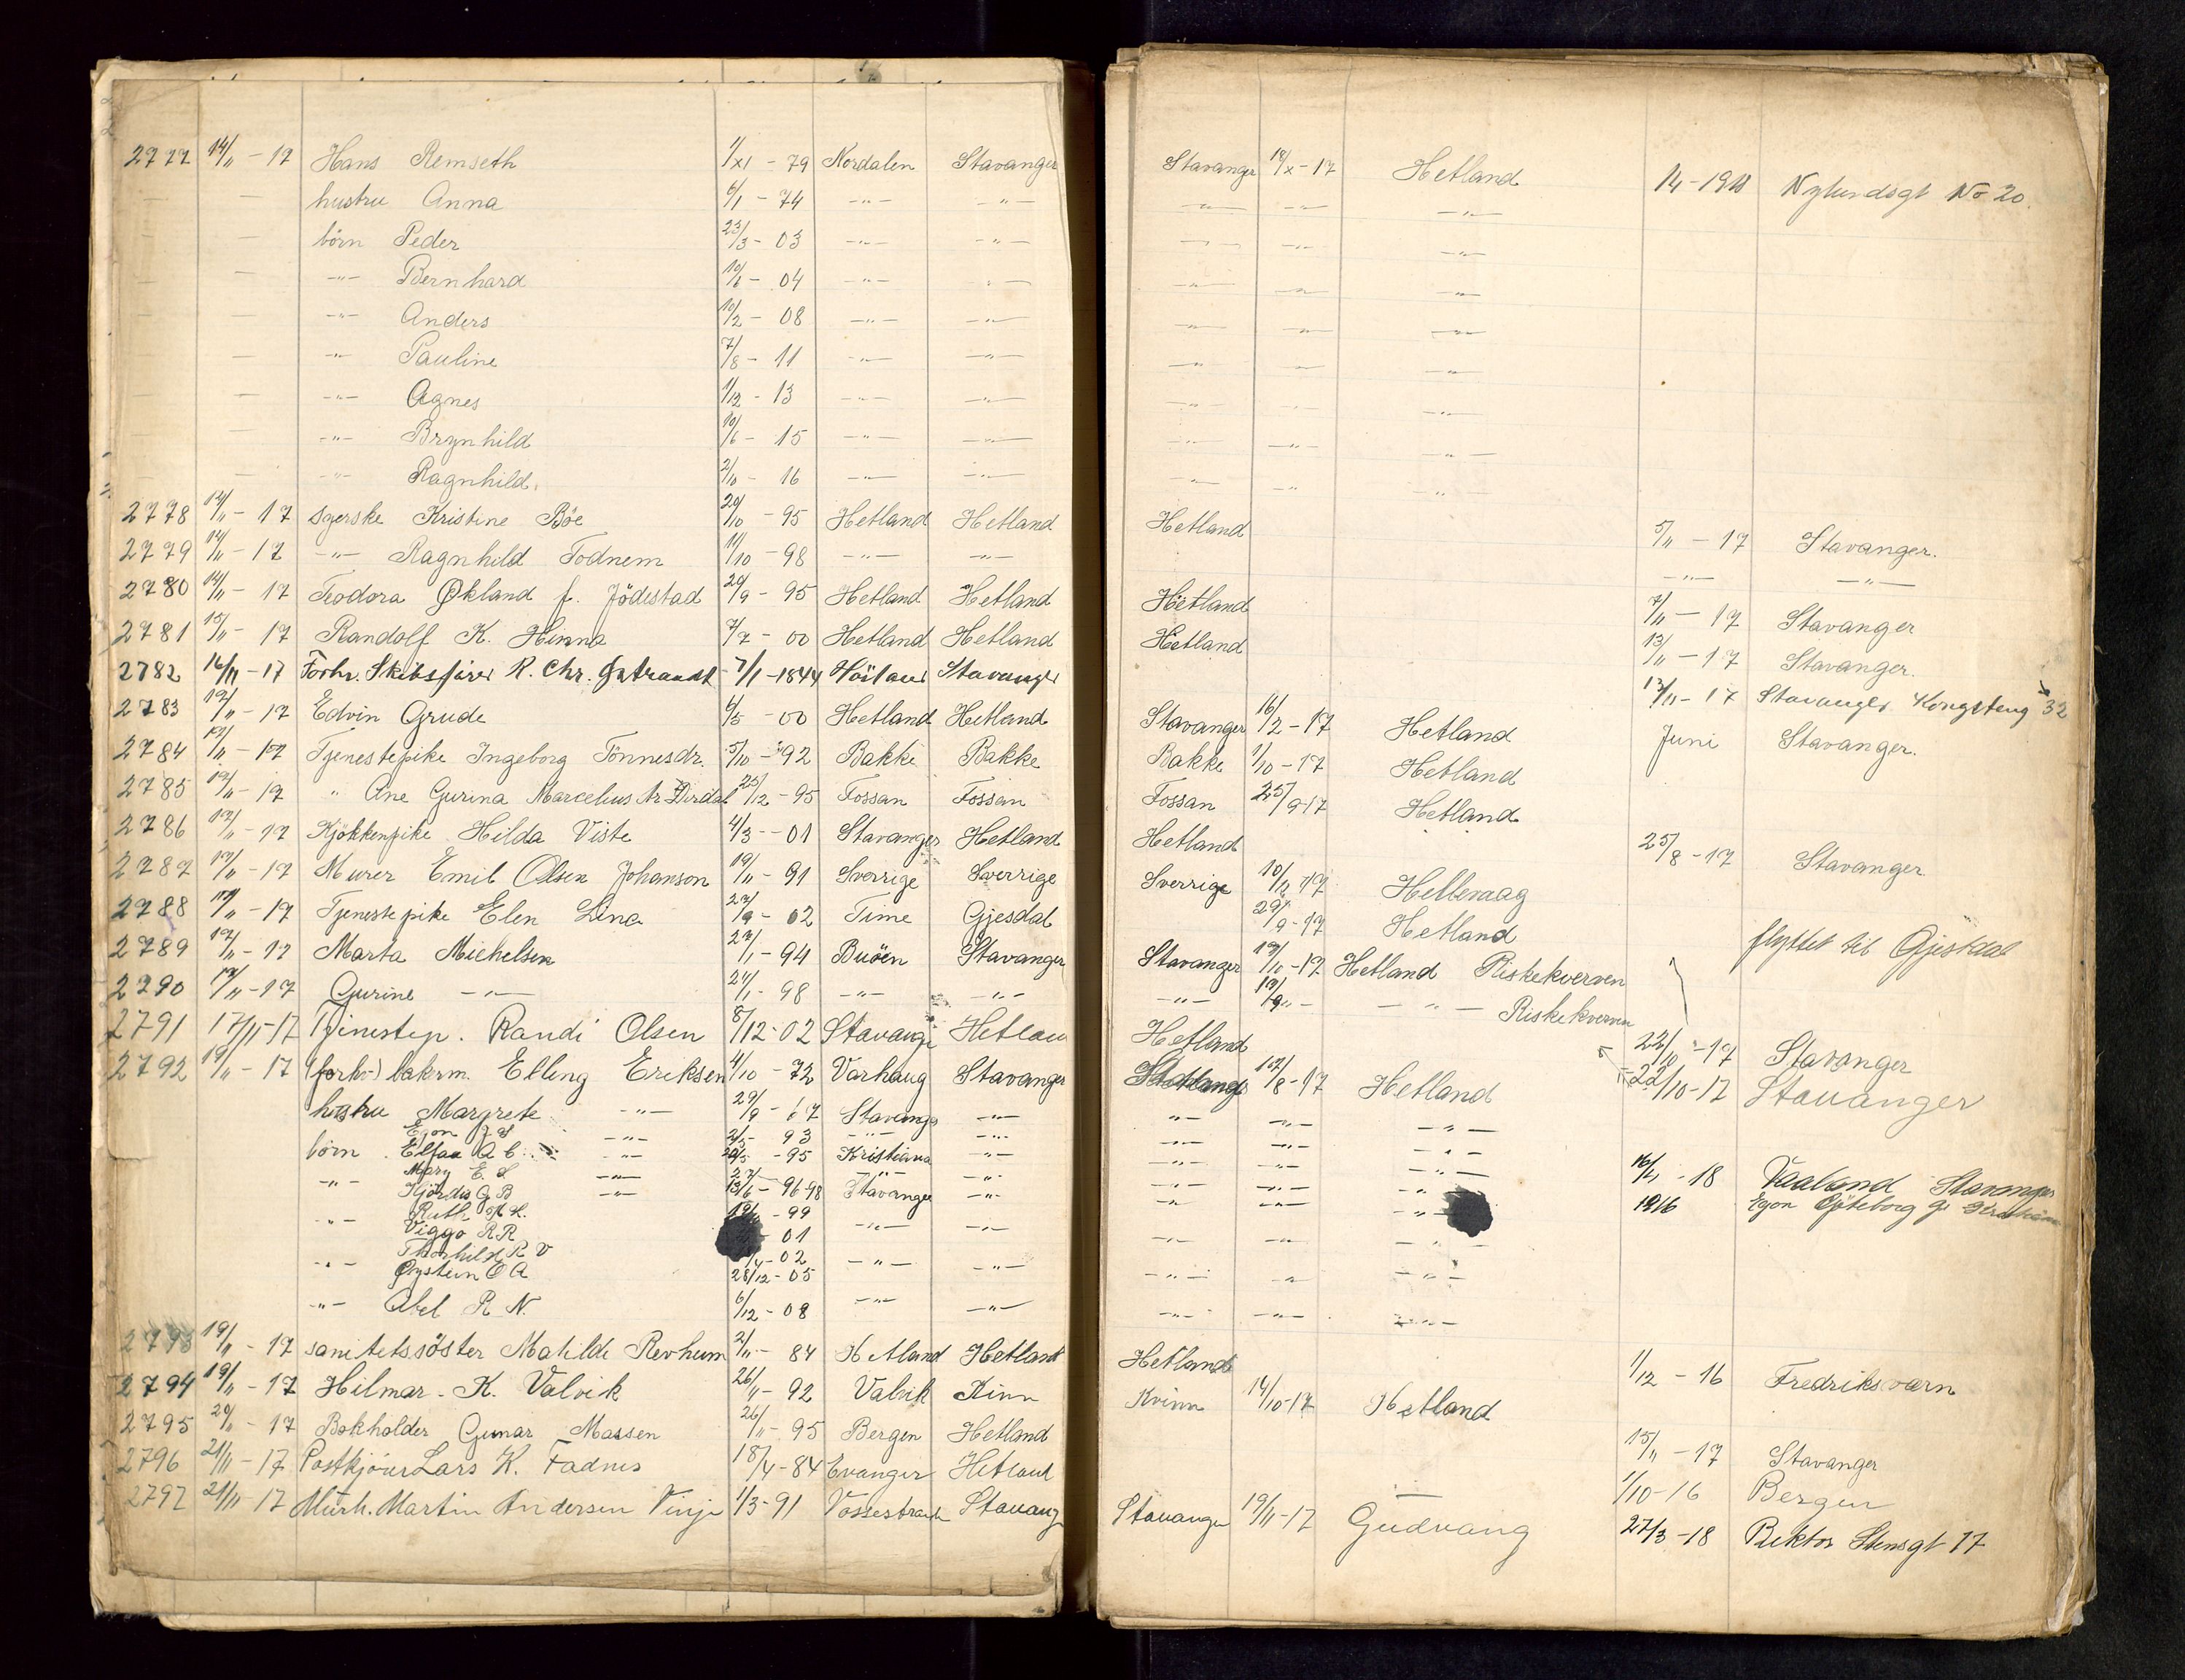 2777 14/11 - 17 Hans Remseth 1/XI - 79 Nordalen Stavanger
— — hustru Anna 6/1 - 74 -"- -"-
börn Peder 23/3 - 03 -"- -"-
— -"- Bernhard 10/6 - 04 -"- -"-
— -"- Anders 10/2 - 08 -"- -"-
— -"- Pauline 7/8 - 11 -"- -"-
— -"- Agnes 1/12 - 13 -"- -"-
— -"- Brynhild 10/6 - 15 -"- -"-
— -"- Ragnhild. 2/10 - 16 -"- -"-
2778 14/11 - 17 syerske Kristine Böe 29/10 - 95 Hetland Hetland
2779 14/11 - 17 -"- Ragnhild Todnem 11/10 - 98 -"- -"-
2780 14/11 - 17 Teodora Økland f. Jödestad 29/9 - 95 Hetland Hetland
2781 15/11 - 17 Randolf K. Hinna 7/7 - 00 Hetland Hetland
2782 16/11 - 17 Forhv. Skibsfører R. Chr. 7/1 - 1844 Stavanger
2783 17/11 - 17 Edvin Grude 6/5 - 00 Hetland Hetland
2784 17/11 - 17 Tjenestepike Ingeborg Tönnesdr. 5/10 - 92 Bakke Bakke
2785 17/11 - 17 " Ane Gurina Marcelius dr. Dirdal 25/12 - 95 Fossan Fossan
2786 17/11 - 17 Kjökkenpike Hilda Viste 4/3 - 01 Stavanger Hetland
2787 17/11 - 17 Murer Emil Olsen Johanson 19/11 - 91 Sverrige Sverrige
2788 17/11 - 17 Tjenestepike Elen Lina 27/9 - 02 Time Gjesdal
2789 17/11 - 17 Marta Michelsen 27/1 - 94 Buöen Stavanger
2790 17/11 - 17 Gurine -"- 27/1 - 98 -"- -"-
2791 17/11 - 17 Tjenestep. Randi Olsen 8/12 - 02 Stavange Hetlan
2792 19/11 - 17 (forhv.) bakerm. Elling Eriksen 4/10 - 72 Varhaug Stavanger
hustru Margrete -"- 29/9 - 67 Stavange -"-
Egon J S -"- 2/5 - 93 -"- -"-
börn Elfaa A C -"- - 95 Kristiania -"-
Mary E. S. — -"- -"-
-"- Hjördis G B -"- 13/6 - 96-98 Stavanger -"-
Ruth M H. - 99
-"- Viggo R.R. 01 -"- -"-
Thorhild R V - 02
-"- Øystein O A 28/12 - 05 -"- -"-
-"- Abel R N. 6/12 - 08 -"- -"-
2793 19/11 - 17 sanitetssöster Matilde Revheim 2/11 - 84 Hetland Hetland
2794 19/11 - 17 Hilmar. K. Valvik 26/11 - 92 Valvik Kinn
2795 20/11 - 17 Bokholder Gunar Massen 26/11 - 95 Bergen Hetland
2796 21/11 - 17 Postkjörer Lars K. Fadnes 18/4 - 84 Evanger Hetland
2797 21/11 - 17 Murh. Martin Andersen Vinje 1/3 - 91 Vossestrand Stavang
Stavanger 18/X - 17 Hetland 14 - 1918 Nylundsgt No 20.
-"- -"- -"-
-"- -"- -"-
-"- -"- -"-
-"- -"- -"-
-"- -"- -"-
-"- -"- -"-
-"- -"- -"-
-"- -"- -"-
Hetland 5/11 - 17 Stavanger.
-"- -"-
Hetland 7/11 - 17 Stavanger
Hetland 13/11 - 17 Stavanger.
13/11 - 17 Stavanger. Kongsteng 32
Stavanger 16/2 - 17 Hetland Juni Stavanger.
Bakke 1/10 - 17 Hetland
Fossan 25/9 17 Hetland
Hetland 25/8 - 17 Stavanger
Sverrige 17 Hellevaag
29/9 - 17 Hetland flyttet til Gjesdal
Stavanger 19/10 - 17 Hetland Riskekverven
-"- -"- -"- Riskekverven
Hetland 22/10 - 17 Stavanger
17/8 - 17 Hetland 22/10 - 17 Stavanger
-"- -"- -"-
-"- -"- -"-
-"- -"- -"- 16/4 - 18 Vaaland Stavanger
-"- -"- -"- 1916 Egon Göteborg
-"- -"- -"-
-"- -"- -"-
-"- -"- -"-
-"- -"- -"-
Hetland 1/12 - 16 Fredriksvarn
Kvinn 14/10 - 17 Hetland
15/11 - 17 Stavanger
— 1/10 - 16 Bergen
Stavanger 19/11 - 17 Gudvang 27/3 - 18 Rektor Stensgt 17